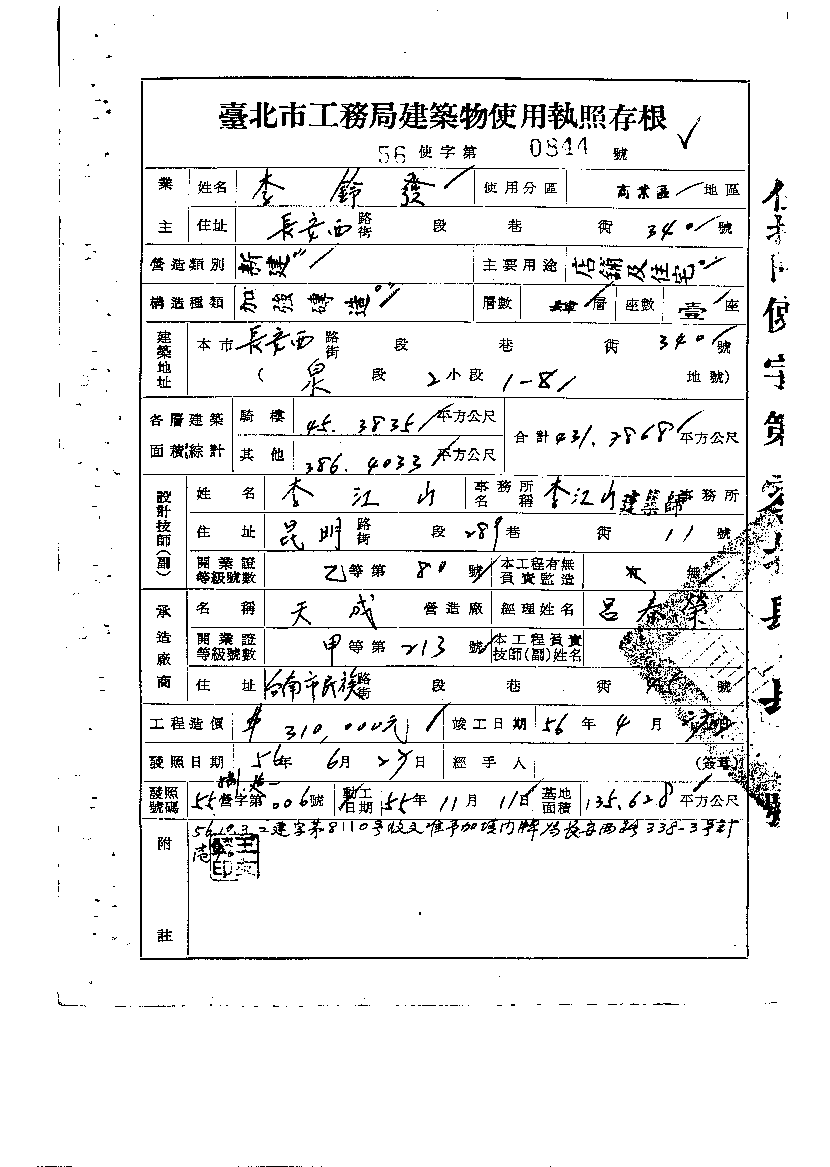 臺北市工務局建築物使用執照存根
56 使字第 0844 號
業主 姓名 李鈴發 使用分區 商業區 地區
住址 長安西 路街 段 巷 街 340 號
營造類別 新建 主要用途 店舖及住宅
構造種類 加強磚造 層數 層 座數 壹 座
建築地址 本市 長安西 路街 段 巷 街 340 號
( 泉 段 2 小段 1-81 地號)
各層建築面積綜計 騎樓 45.3835 平方公尺 合計 431.7868 平方公尺
其他 386.4033 平方公尺
設計技師(副) 姓名 李江山 事務所名稱 李江山建築師事務所
住址 昆明 路街 段 289 巷 街 11 號
開業證等級號數 乙等第 80 號 本工程有無負責監造 無
承造廠商 名稱 天成 營造廠 經理姓名 呂春榮
開業證等級號數 甲等第 213 號 本工程負責技師(副)姓名
住址 台南市民族 路街 段 巷 街 號
工程造價 $ 310,000元 竣工日期 56 年 4 月
發照日期 56 年 6 月 27 日 經手人 (簽章)
發照號碼 55 營字第 006 號 動工日期 55 年 11 月 11 日 基地面積 135.628 平方公尺
附註 56.10.3.二建字第8110號收文准予加項內牌為長安西路338-3號計壱